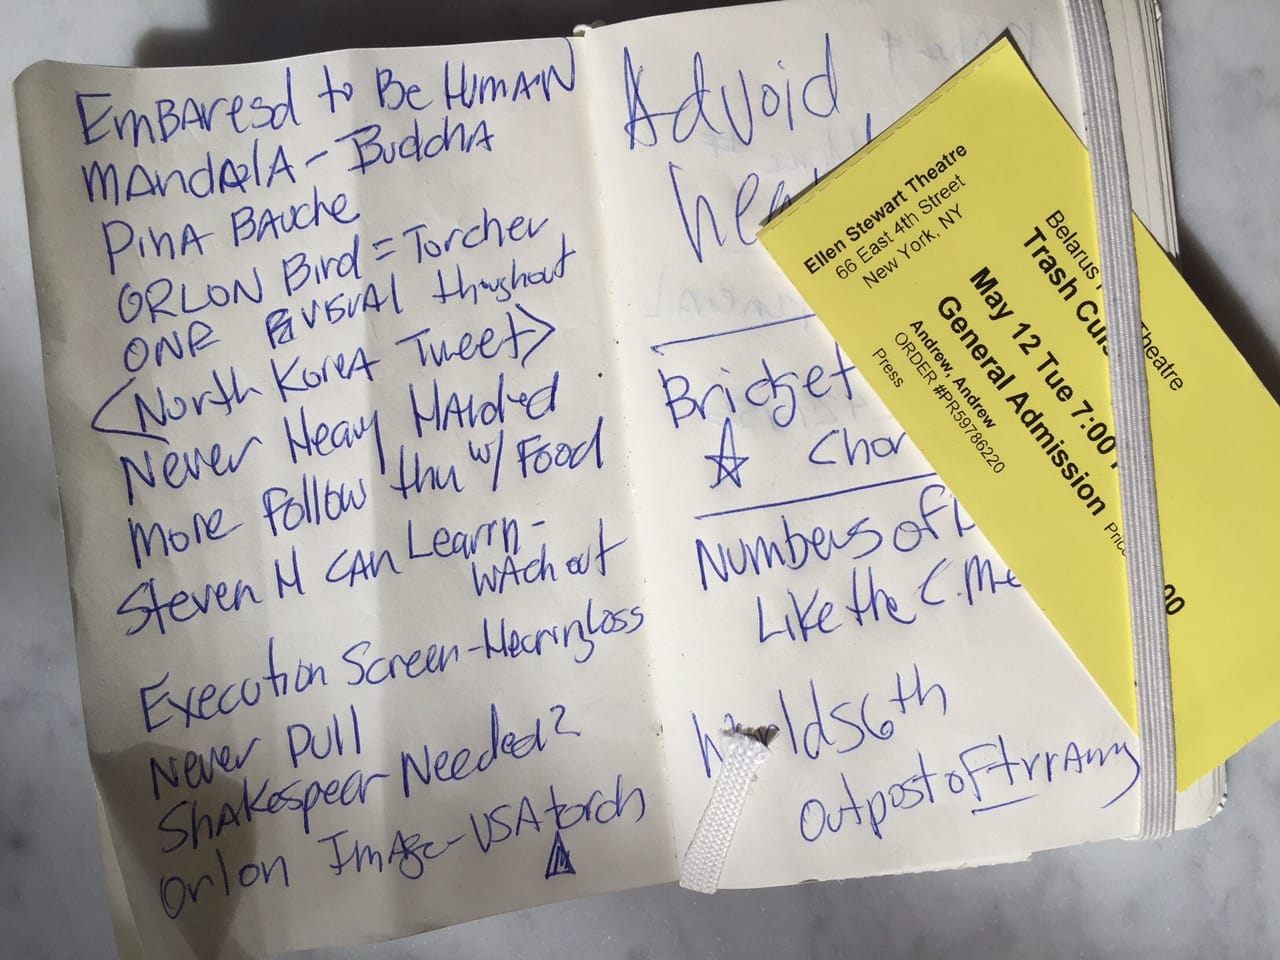 EmBAresd to Be HumAN
MAndAlA - Buddha
PinA BAuche
ORLON Bird = Torcher
ONE VISUAl thoughout
<North KoreA Tweet>
Never Heavy HAnded
More Follow thru w/ Food
Steven M CAN Learn -
WAch out
Execution Screen - HearingLoss
Never Dull
ShAkespear Needed?
Orlon ImAge - USA torch
Advoid
hea
Bridget
Chor
Numbers of
Like the C.Me
Worlds 6th
Outpost of
Ellen Stewart Theatre
66 East 4th Street
New York, NY
Belarus Theatre
Trash Cul
May 12 Tue 7:00
General Admission
Andrew, Andrew
ORDER #PR59786220
Press
Price
00